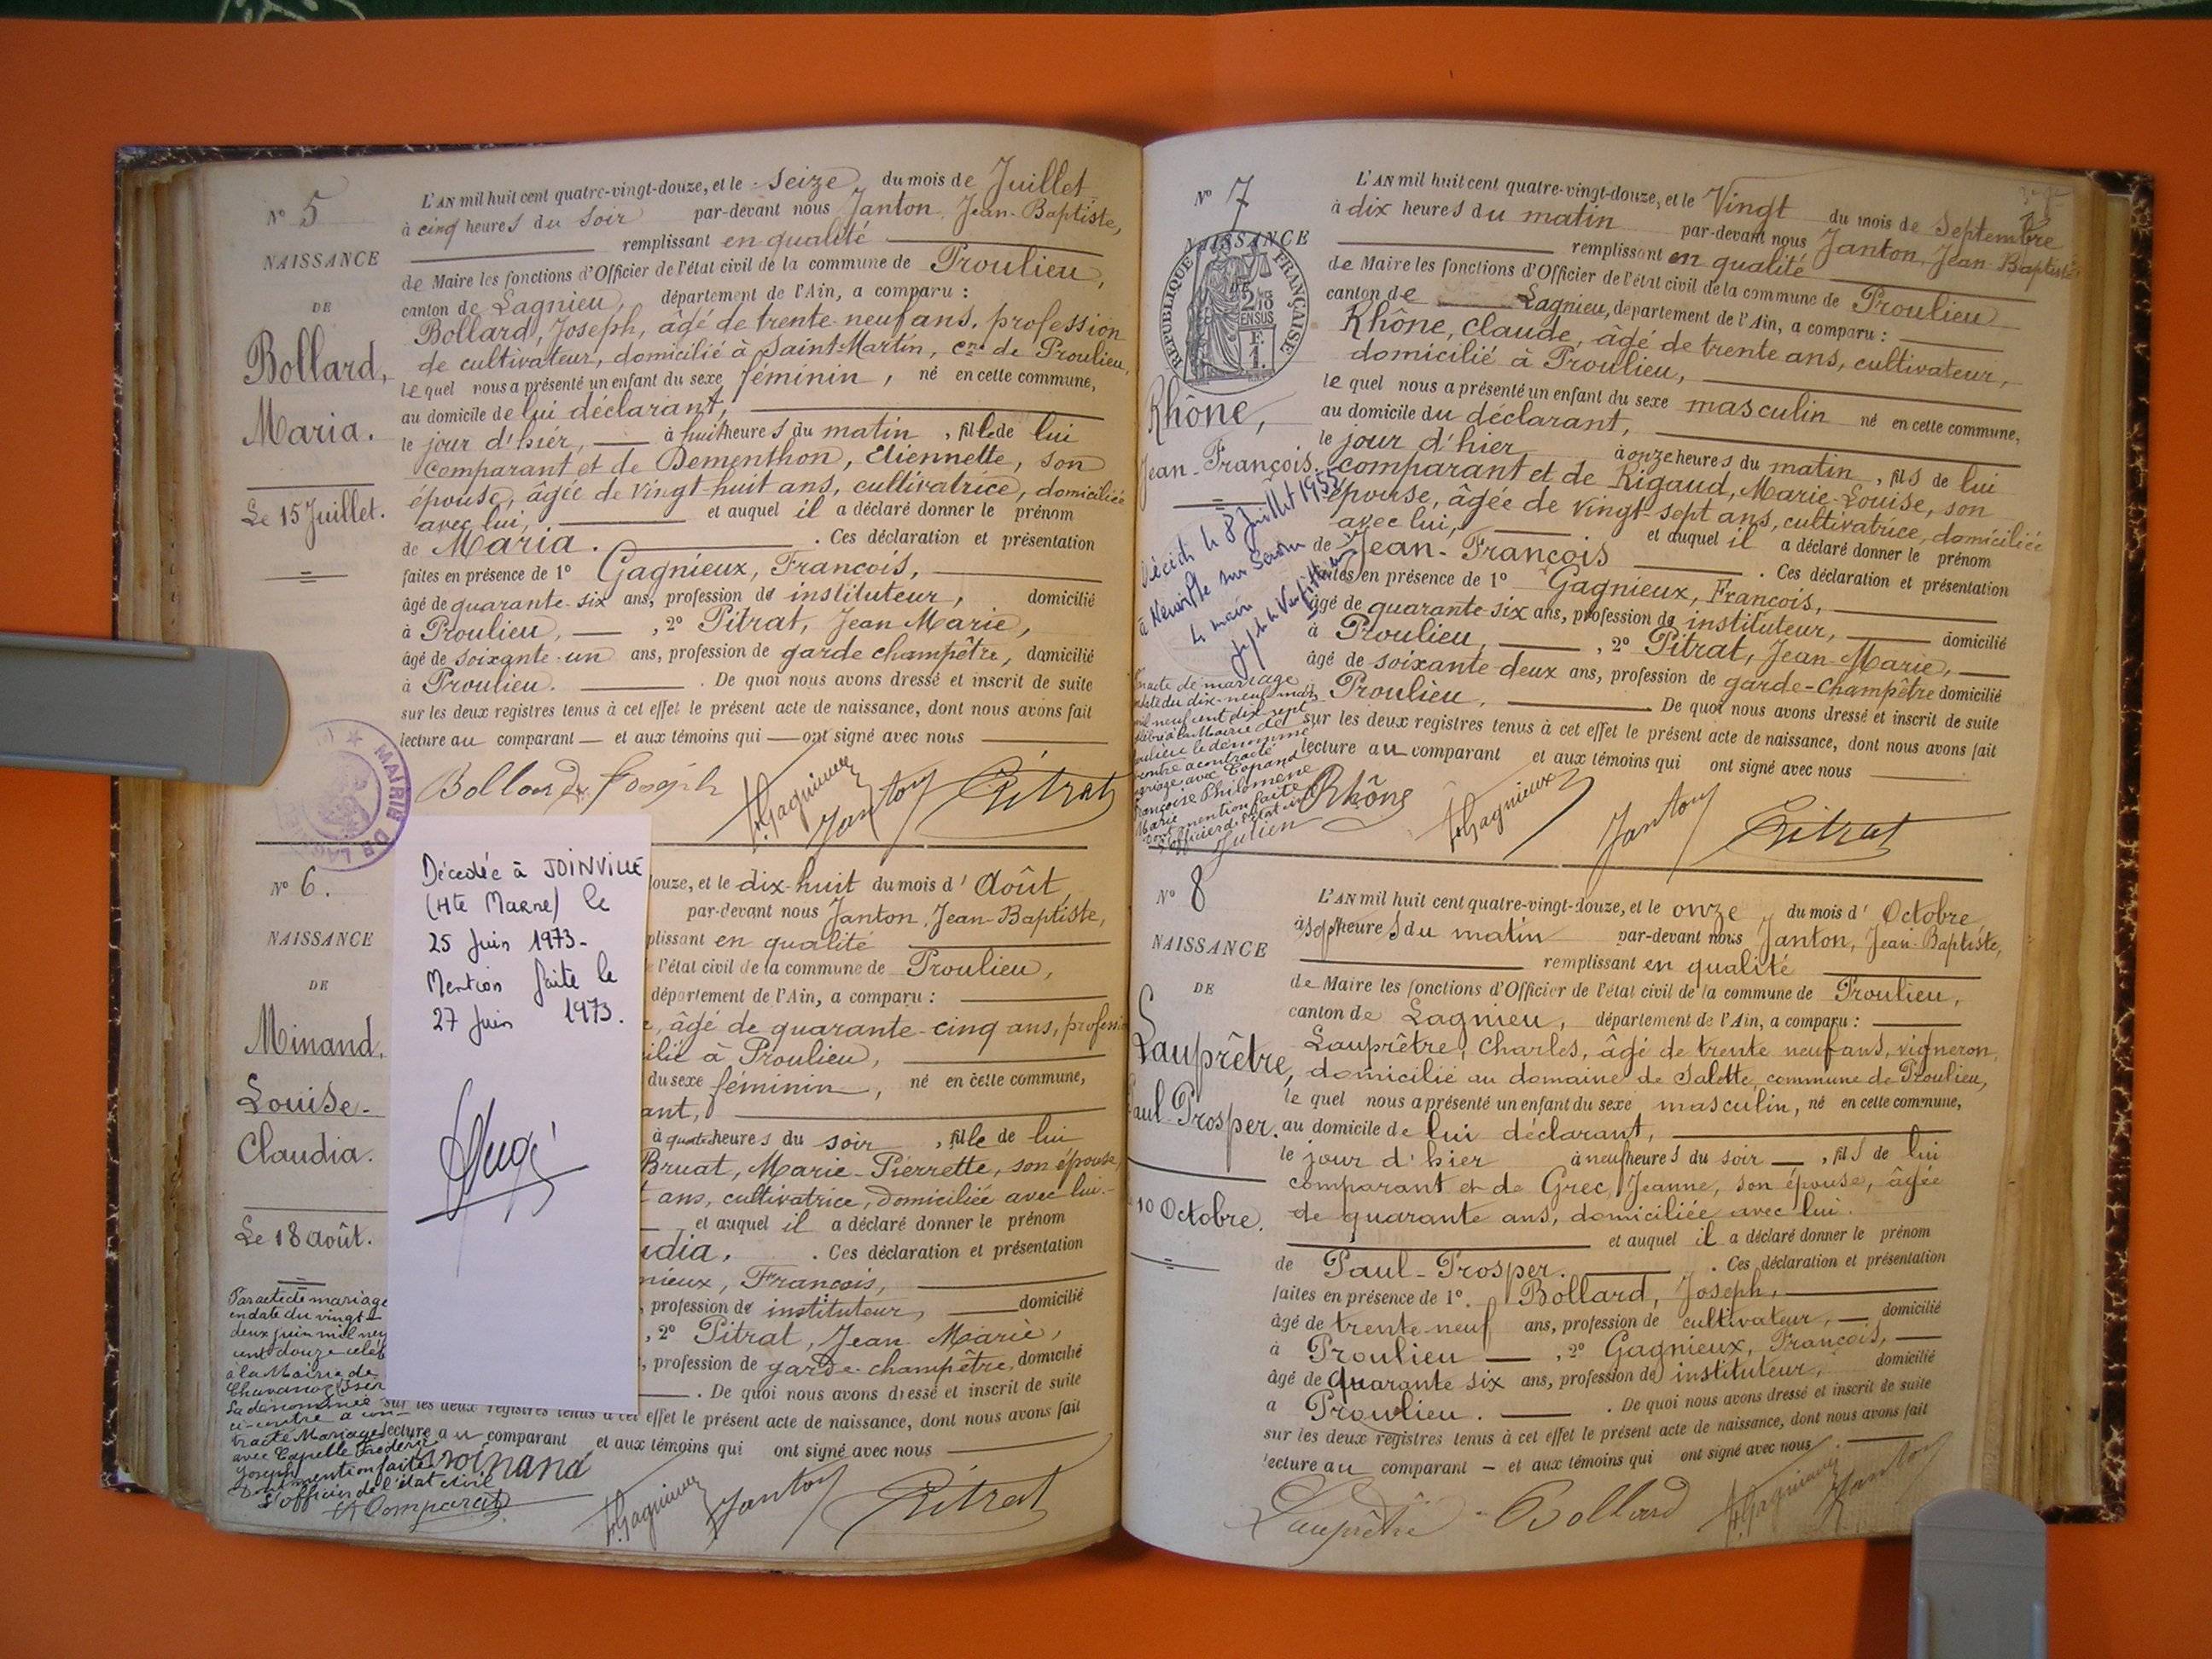 N° 5
NAISSANCE
DE
Bollard,
Maria.
Le 15 Juillet.
L'AN mil huit cent quatre-vingt-douze, et le seize du mois de Juillet
à cinq heures du soir par-devant nous Janton, Jean-Baptiste,
remplissant en qualité
de Maire les fonctions d'Officier de l'état civil de la commune de Proulieu,
canton de Lagnieu, département de l'Ain, a comparu :
Bollard, Joseph, âgé de trente-neuf ans, profession
de cultivateur, domicilié à Saint-Martin, cne de Proulieu,
le quel nous a présenté un enfant du sexe féminin, né en cette commune,
au domicile de lui déclarant,
le jour d'hier, à huit heures du matin, fille de lui
comparant et de Dementhon, Etiennette, son
épouse, âgée de vingt-huit ans, cultivatrice, domiciliée
avec lui, et auquel il a déclaré donner le prénom
de Maria. Ces déclaration et présentation
faites en présence de 1° Gagnieux, François,
âgé de quarante-six ans, profession de instituteur, domicilié
à Proulieu, 2° Pitrat, Jean Marie,
âgé de soixante-un ans, profession de garde champêtre, domicilié
à Proulieu. De quoi nous avons dressé et inscrit de suite
sur les deux registres tenus à cet effet le présent acte de naissance, dont nous avons fait
lecture au comparant et aux témoins qui ont signé avec nous
Bollard Joseph Gagnieux Janton Pitrat
MAIRIE DE
Décédée à JOINVILLE
(Hte Marne) le
25 juin 1973-
Mention faite le
27 juin 1973.
N° 6.
NAISSANCE
DE
Minand,
Louise-
Claudia.
Le 18 août.
Par acte de mariage
en date du vingt
deux juin mil neu
cent douze céléb
à la Mairie de
Chavanoz (Isèr
la dénommée
ci-contre a con-
tracté Mariage
avec Capelle Frédéric
Joseph
Dont mention faite
L'officier de l'état civil
Comparat
ouze, et le dix-huit du mois d'Août,
par-devant nous Janton, Jean-Baptiste,
plissant en qualité
l'état civil de la commune de Proulieu,
département de l'Ain, a comparu :
, âgé de quarante-cinq ans, professi
ilié à Proulieu,
du sexe féminin, né en cette commune,
ant,
à quatre heures du soir, fille de lui
Bruat, Marie-Pierrette, son épouse,
t ans, cultivatrice, domiciliée avec lui.
et auquel il a déclaré donner le prénom
udia. Ces déclaration et présentation
nieux, François,
, profession de instituteur, domicilié
, 2° Pitrat, Jean Marie,
, profession de garde-champêtre, domicilié
. De quoi nous avons dressé et inscrit de suite
sur les deux registres tenus à cet effet le présent acte de naissance, dont nous avons fait
lecture au comparant et aux témoins qui ont signé avec nous
Gagnieux Janton Pitrat
N° 7
NAISSANCE
DE
REPUBLIQUE FRANÇAISE
2/10 EN SUS
F. 1.
Rhône,
Jean-François.
L'AN mil huit cent quatre-vingt-douze, et le Vingt du mois de Septembre
à dix heures du matin par-devant nous Janton, Jean-Baptiste
remplissant en qualité
de Maire les fonctions d'Officier de l'état civil de la commune de Proulieu
canton de Lagnieu, département de l'Ain, a comparu :
Rhône, Claude, âgé de trente ans, cultivateur,
domicilié à Proulieu,
le quel nous a présenté un enfant du sexe masculin né en cette commune,
au domicile du déclarant,
le jour d'hier à onze heures du matin, fils de lui
comparant et de Rigaud, Marie-Louise, son
épouse, âgée de vingt-sept ans, cultivatrice, domiciliée
avec lui, et auquel il a déclaré donner le prénom
de Jean-François. Ces déclaration et présentation
faites en présence de 1° Gagnieux, François,
âgé de quarante-six ans, profession de instituteur, domicilié
à Proulieu, 2° Pitrat, Jean-Marie,
âgé de soixante-deux ans, profession de garde-champêtre domicilié
Proulieu, De quoi nous avons dressé et inscrit de suite
sur les deux registres tenus à cet effet le présent acte de naissance, dont nous avons fait
lecture au comparant et aux témoins qui ont signé avec nous
Rhône Gagnieux Janton Pitrat
Décédé le 8 Juillet 1955
à Neuville sur Saône
mariage
du dix-neuf mars
neuf cent dix-sept
à la Mairie de
le dénommé
contracté
avec
Philomène
Marie
Dont mention faite
L'officier de l'état civil
Julien
N° 8
NAISSANCE
DE
Lauprêtre,
Paul-Prosper.
10 Octobre.
L'AN mil huit cent quatre-vingt-douze, et le onze du mois d'Octobre
à sept heures du matin par-devant nous Janton, Jean-Baptiste,
remplissant en qualité
de Maire les fonctions d'Officier de l'état civil de la commune de Proulieu,
canton de Lagnieu, département de l'Ain, a comparu :
Lauprêtre, Charles, âgé de trente neuf ans, vigneron,
domicilié au domaine de Salette, commune de Proulieu,
le quel nous a présenté un enfant du sexe masculin, né en cette commune,
au domicile de lui déclarant,
le jour d'hier à neuf heures du soir, fils de lui
comparant et de Grec, Jeanne, son épouse, âgée
de quarante ans, domiciliée avec lui.
et auquel il a déclaré donner le prénom
de Paul-Prosper. Ces déclaration et présentation
faites en présence de 1°. Bollard, Joseph,
âgé de trente-neuf ans, profession de cultivateur, domicilié
à Proulieu, 2° Gagnieux, François,
âgé de quarante six ans, profession de instituteur, domicilié
à Proulieu. De quoi nous avons dressé et inscrit de suite
sur les deux registres tenus à cet effet le présent acte de naissance, dont nous avons fait
lecture au comparant – et aux témoins qui ont signé avec nous
Lauprêtre Bollard Gagnieux Janton